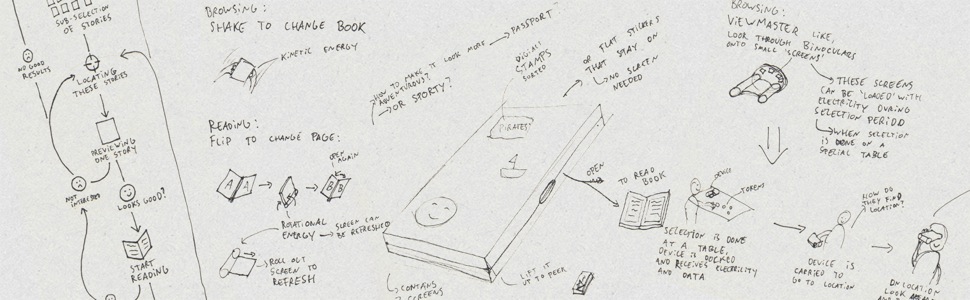 SUB-SELECTION
OF STORIES
NO GOOD
RESULTS
LOCATING
THESE STORIES
PREVIEWING
ONE STORY
NOT
INTERESTED
LOOKS GOOD?
START
READING
BROWSING:
SHAKE TO CHANGE BOOK
KINETIC ENERGY
READING:
FLIP TO CHANGE PAGE:
A A
OPEN
AGAIN
B B
ROTATIONAL
ENERGY
SCREEN CAN
BE REFRESHED
ROLL OUT
SCREEN TO
REFRESH
HOW TO MAKE IT LOOK MORE
ADVENTUROUS??
OR SPORTY?
PASSPORT
DIGITAL
STAMPS
SORTED
OR FLAT STICKERS
THAT STAY ON
NO SCREEN
NEEDED
PIRATES
4
OPEN
TO READ
BOOK
CONTAINS
SCREENS
LIFT IT
UP TO PEEK
DEVICE
TOKEN
SELECTION IS DONE
AT A TABLE,
DEVICE IS DOCKED
AND RECEIVES ELECTRICITY
AND DATA
BROWSING:
VIEWMASTER LIKE,
LOOK THROUGH BINOCULARS
ONTO SMALL 'SCREENS'
THESE SCREENS
CAN BE 'LOADED' WITH
ELECTRICITY DURING
SELECTION PERIOD
WHEN SELECTION
IS DONE ON A
SPECIAL TABLE
HOW DO
THEY FIND
LOCATION?
DEVICE IS
CARRIED TO
GO TO LOCATION
ON LOCATION
LOOK